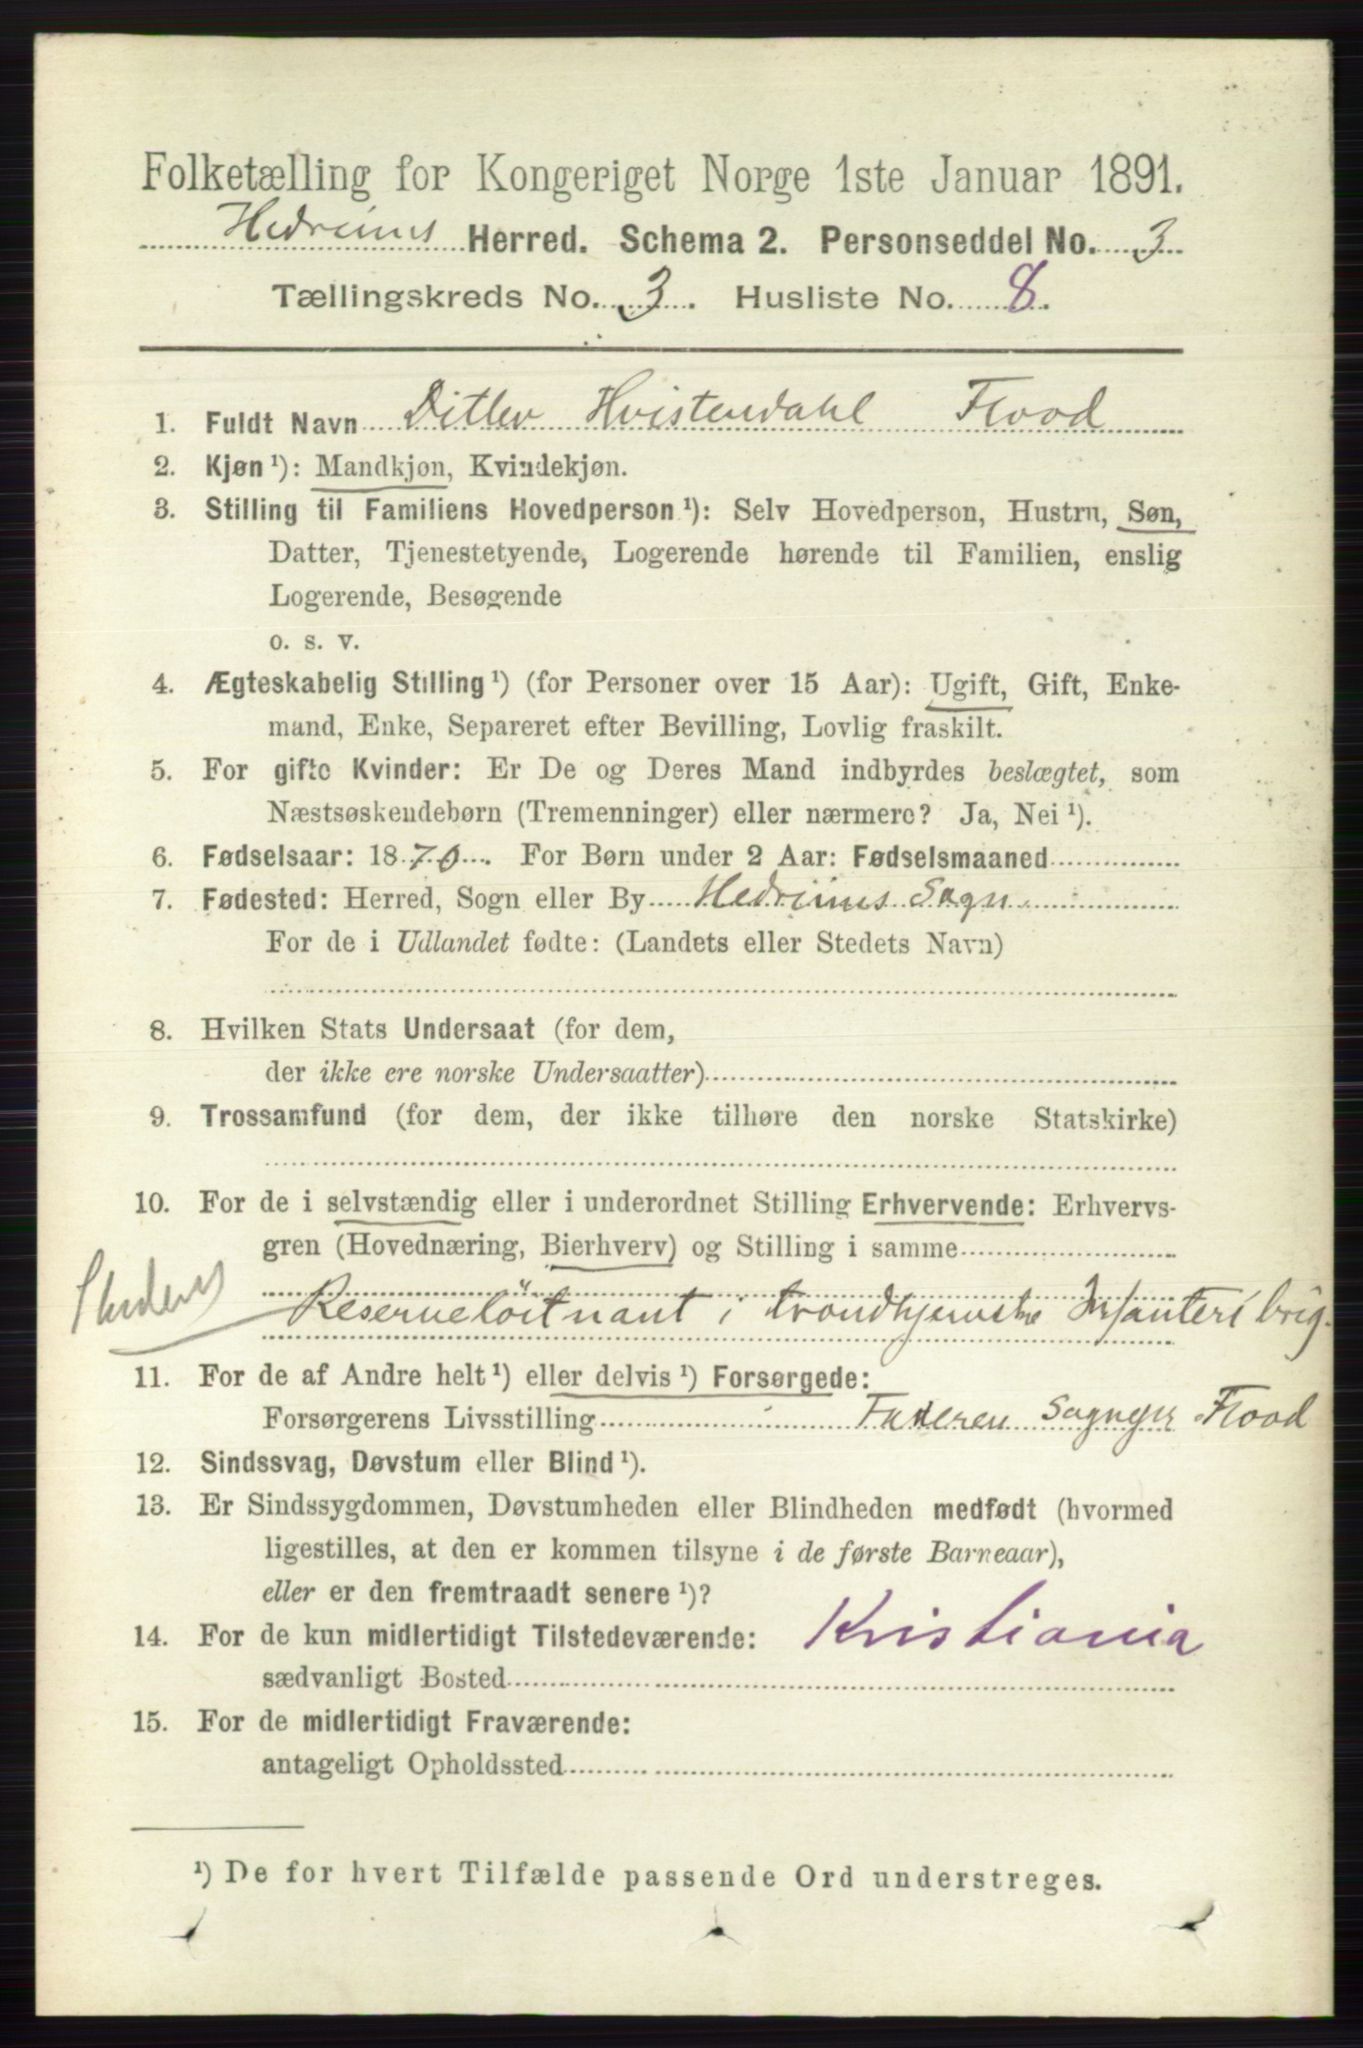 Folketælling for Kongeriget Norge 1ste Januar 1891.
Hedrums Herred. Schema 2. Personseddel No. 3
Tællingskreds No. 3. Husliste No. 8.
1. Fuldt Navn Ditlev Hvistendahl Flood
2. Kjøn ¹): Mandkjøn, Kvindekjøn.
3. Stilling til Familiens Hovedperson ¹): Selv Hovedperson, Hustru, Søn,
Datter, Tjenestetyende, Logerende hørende til Familien, enslig
Logerende, Besøgende
o. s. v.
4. Ægteskabelig Stilling ¹) (for Personer over 15 Aar): Ugift, Gift, Enke-
mand, Enke, Separeret efter Bevilling, Lovlig fraskilt.
5. For gifte Kvinder: Er De og Deres Mand indbyrdes beslægtet, som
Næstsøskendebørn (Tremenninger) eller nærmere? Ja, Nei ¹).
6. Fødselsaar: 1870. For Børn under 2 Aar: Fødselsmaaned
7. Fødested: Herred, Sogn eller By Hedrums Sogn
For de i Udlandet fødte: (Landets eller Stedets Navn)
8. Hvilken Stats Undersaat (for dem,
der ikke ere norske Undersaatter)
9. Trossamfund (for dem, der ikke tilhøre den norske Statskirke)
10. For de i selvstændig eller i underordnet Stilling Erhvervende: Erhvervs-
gren (Hovednæring, Bierhverv) og Stilling i samme
Student
Reserveløitnant i trondhjemske Infanteribrig.
11. For de af Andre helt ¹) eller delvis ¹) Forsørgede:
Forsørgerens Livsstilling Faderen Sognepr Flood
12. Sindssvag, Døvstum eller Blind ¹).
13. Er Sindssygdommen, Døvstumheden eller Blindheden medfødt (hvormed
ligestilles, at den er kommen tilsyne i de første Barneaar),
eller er den fremtraadt senere ¹)?
14. For de kun midlertidigt Tilstedeværende: Kristiania
sædvanligt Bosted
15. For de midlertidigt Fraværende:
antageligt Opholdssted
¹) De for hvert Tilfælde passende Ord understreges.